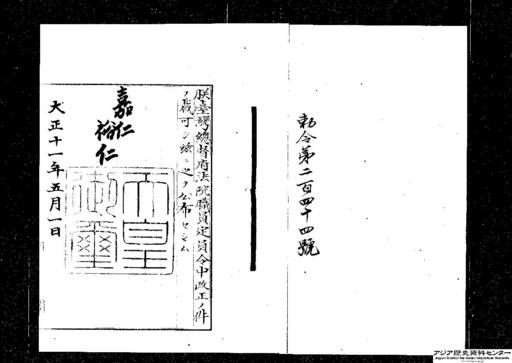 勅令第二百四十四號
朕臺灣總督府法院職員定員令中改正ノ件
ヲ裁可シ茲ニ之ヲ公布セシム
嘉仁
裕仁
天皇御璽
大正十一年五月一日
アジア歴史資料センター
Japan Center for Asian Historical Records